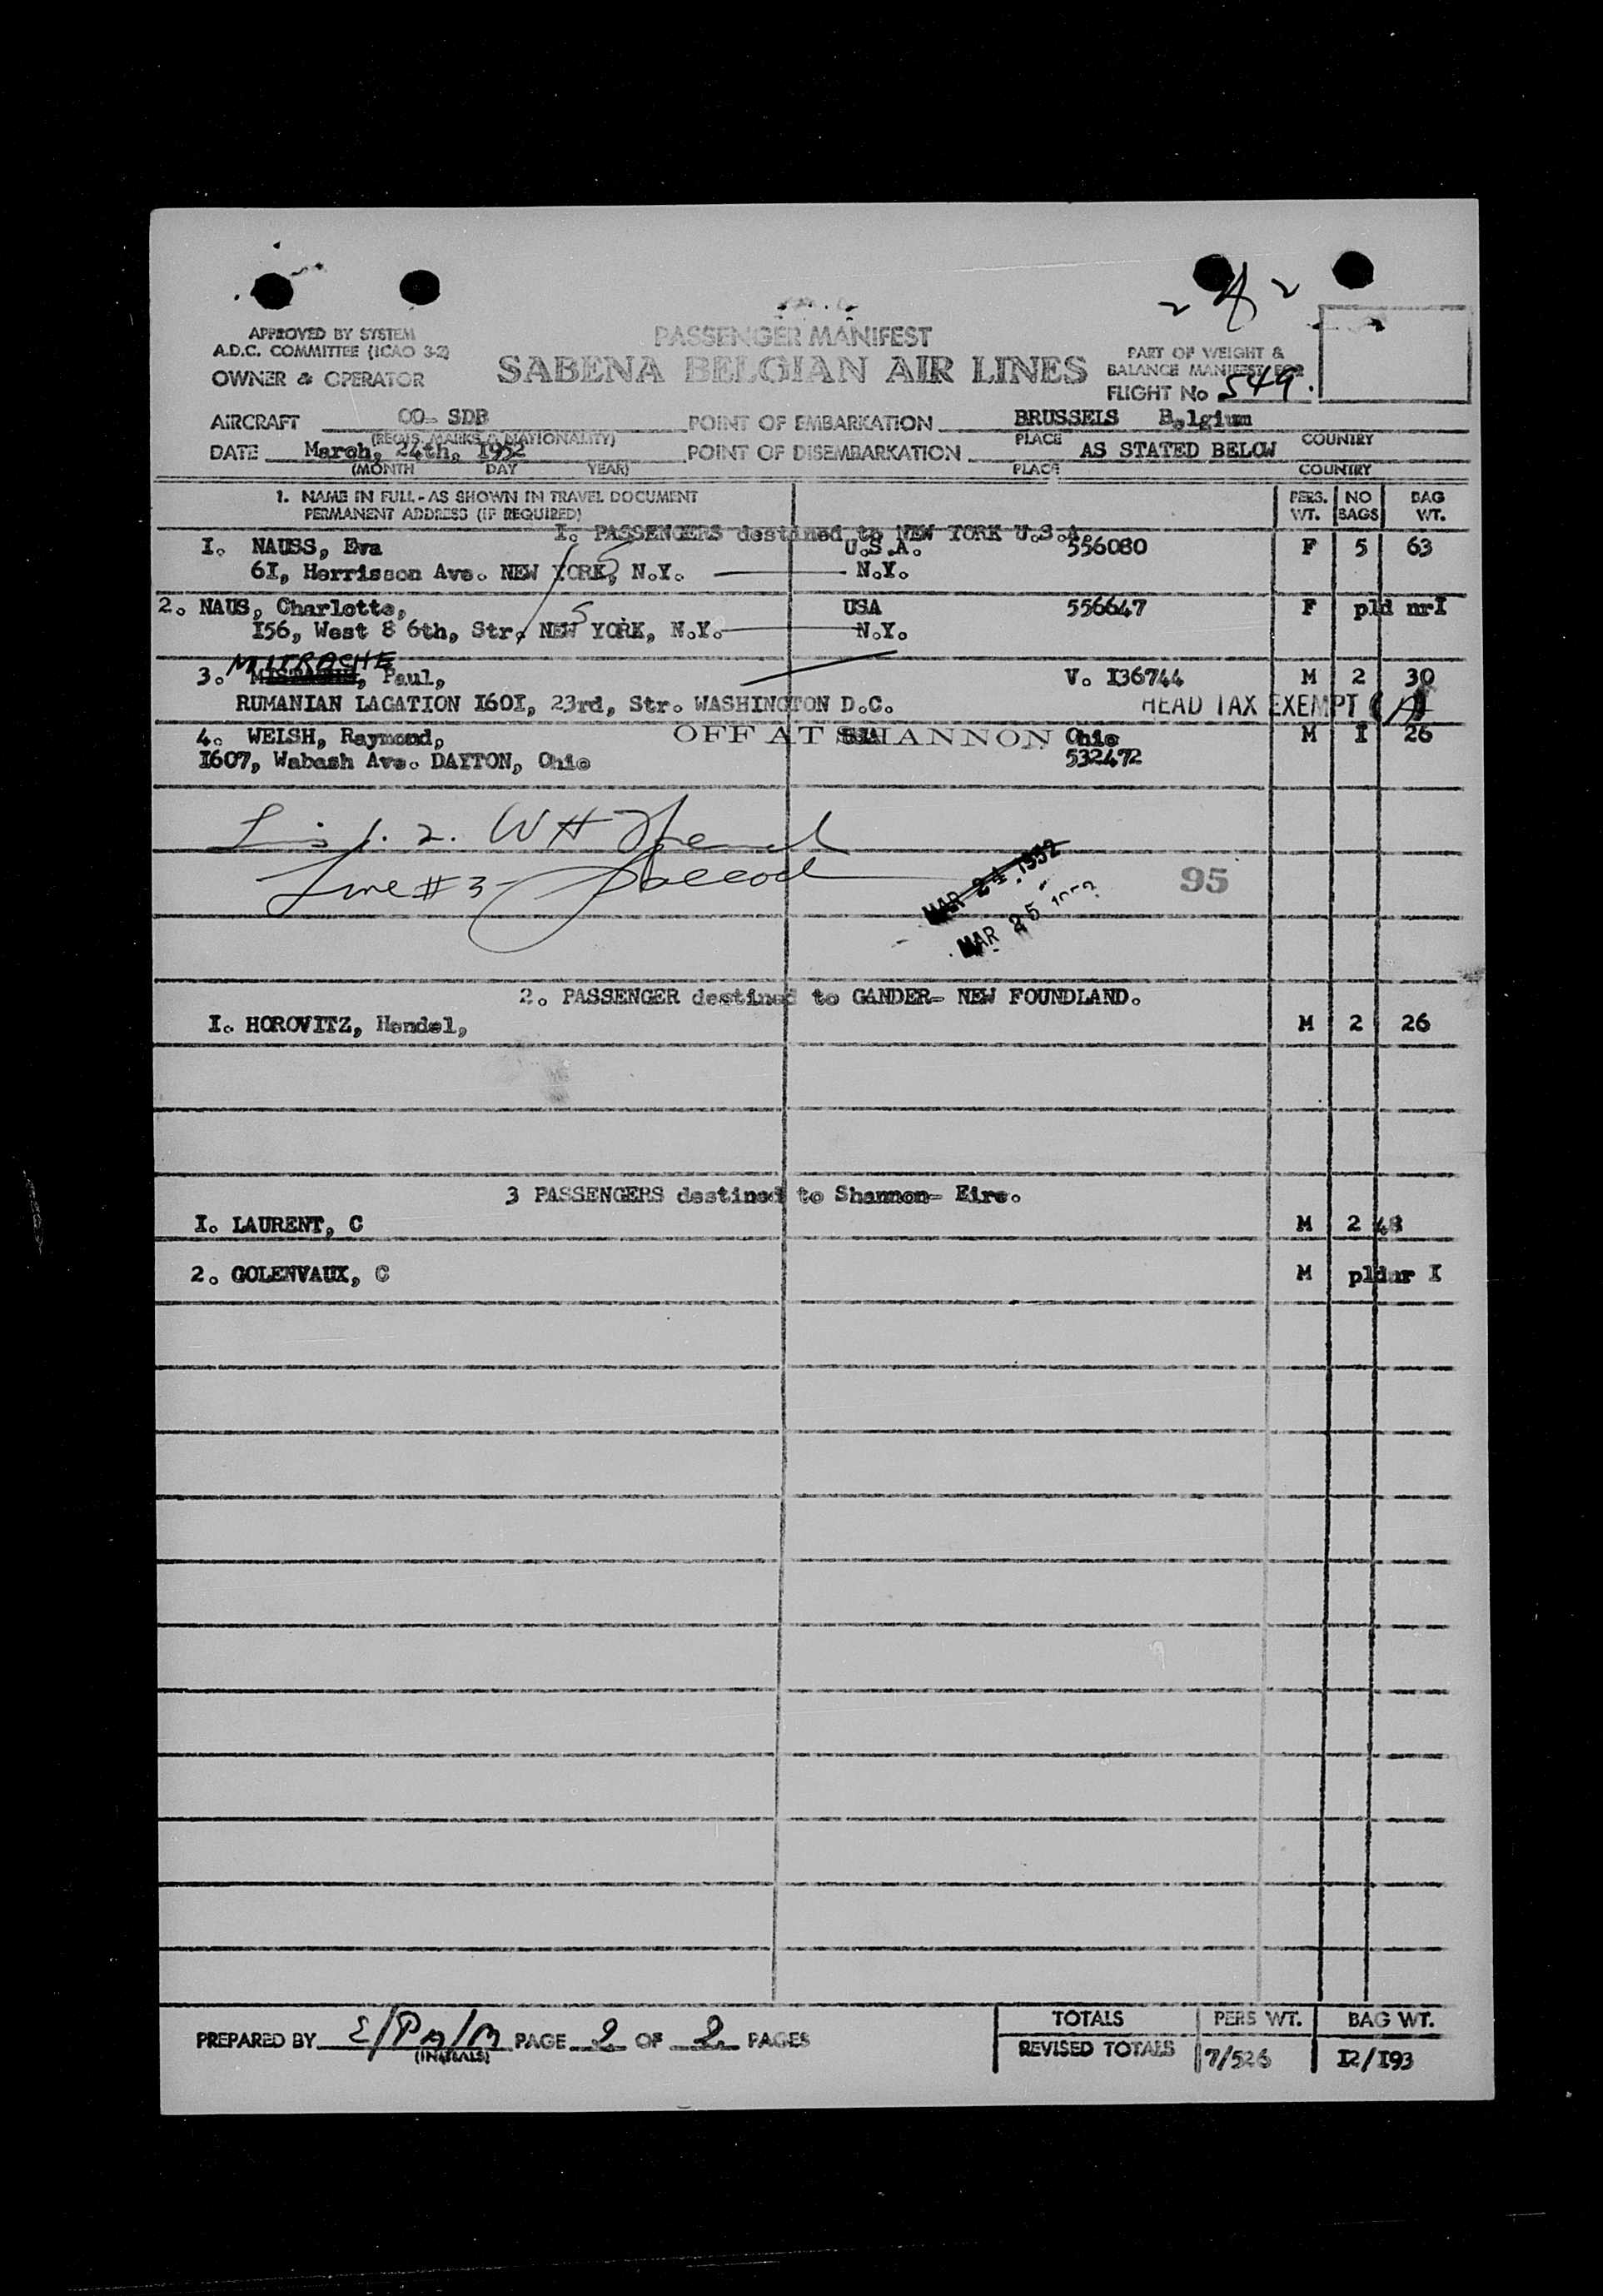 2 of 2
APPROVED BY SYSTEM
A.D.C. COMMITTEE (ICAO 3-2)
OWNER & OPERATOR
PASSENGER MANIFEST
SABENA BELGIAN AIR LINES
PART OF WEIGHT &
BALANCE MANIFEST FOR
FLIGHT No 549.
AIRCRAFT OO- SDB POINT OF EMBARKATION BRUSSELS Belgium
(REGIS. MARKS & NATIONALITY) PLACE COUNTRY
DATE March, 24th, I952 POINT OF DISEMBARKATION AS STATED BELOW
(MONTH DAY YEAR) PLACE COUNTRY
1. NAME IN FULL - AS SHOWN IN TRAVEL DOCUMENT PERS. NO BAG
PERMANENT ADDRESS (IF REQUIRED) WT. BAGS WT.
I. PASSENGERS destined to NEW YORK U.S.A.
I. NAUSS, Eva U.S.A. 556080 F 5 63
6I, Harrisson Ave. NEW YORK, N.Y. N.Y.
2. NAUS, Charlotte, USA 556647 F pld nrI
I56, West 8 6th, Str. NEW YORK, N.Y. N.Y.
MITRACHE
3. Paul, V. I36744 M 2 30
RUMANIAN LAGATION I60I, 23rd, Str. WASHINGTON D.C. HEAD TAX EXEMPT
4. WEISH, Raymond, OFF AT SHANNON USA Ohio M I 26
I607, Wabash Ave. DAYTON, Ohio 532472
1. 2. WH
Line # 3
MAR 24 1952
MAR 25 1952
95
2. PASSENGER destined to GANDER- NEW FOUNDLAND.
I. HOROVITZ, Hendel, M 2 26
3 PASSENGERS destined to Shannon- Eire.
I. LAURENT, C M 2 48
2. GOLENVAUX, C M pldnr I
TOTALS PERS WT. BAG WT.
PREPARED BY (INITIALS) PAGE 2 OF 2 PAGES
REVISED TOTALS 7/526 I2/I93